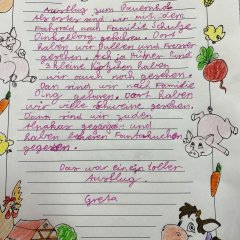 Ausflug zum Bauernhof
Als erster sind wir mit dem
Fahrrad nach Familie Schulze
gefahren. Dort
haben wir Bullen und Fresser
gesehen. Ach ja Hühner und
3 kleine Kätzchen haben
wir auch noch gesehen.
Dan sind wir nach Familie
Ving gefahren. Dort haben
wir viele Schweine gesehen.
Dann sind wir zu den
Alpakas gegangen und
haben leckeren
gegessen.
Das war ein toller
Ausflug.
Greta